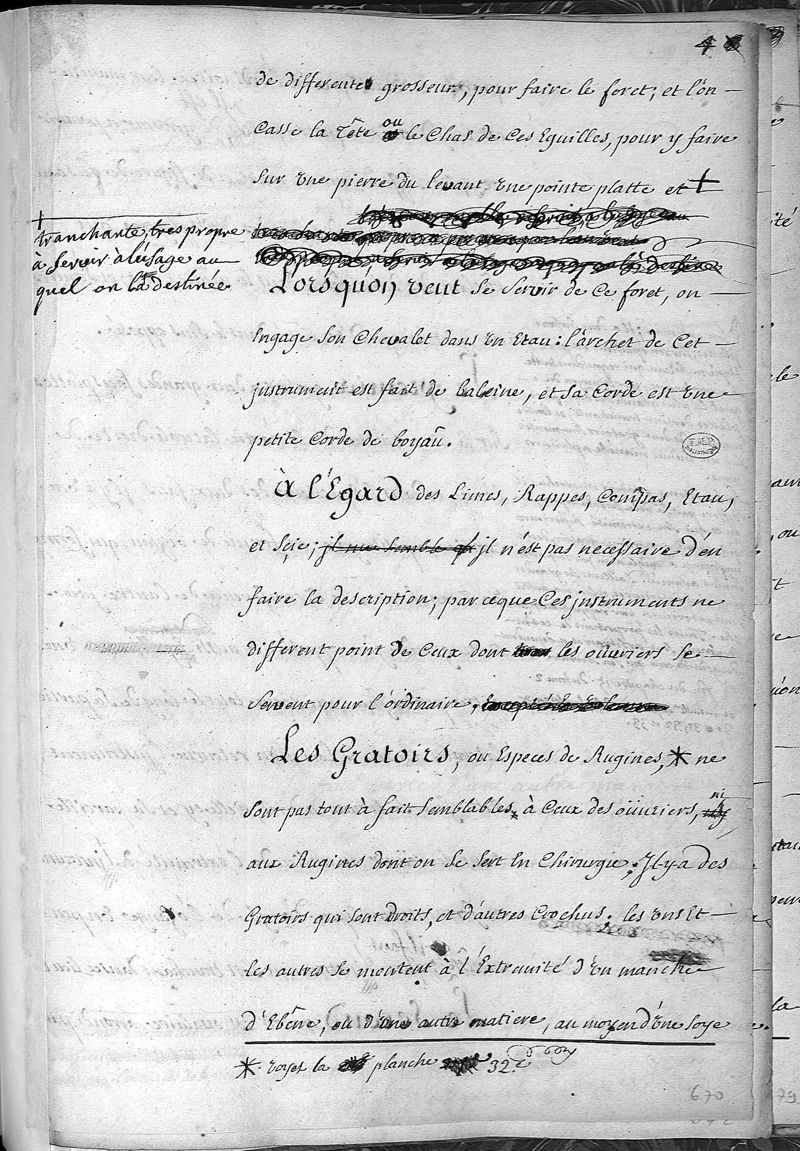 de differente grosseur, pour faire le foret; et l'on
Casse la Tête ou le Chas de Ces Equilles, pour y faire
sur une pierre du levant, une pointe platte et +
+
tranchante, tres propre
à servir à l'usage au
quel on la destinée
Lorsquon veut se servir de Ce foret, on
Engage son Chevalet dans un Etau: l'archet de Cet
jnstrument est fait de baleine, et sa Corde est une
petite Corde de boyau.
à l'Egard des Limes, Rappes, Compas, Etau,
et Scie; jl me semble jl n'est pas necessaire d'en
faire la description; parceque Ces jnstruments ne
different point de Ceux dont les ouvriers se
servent pour l'ordinaire.
Les Gratoirs, ou Especes de Rugines, * ne
sont pas tout à fait semblables à Ceux des oüuriers, ni
aux Rugines dont on se sert En Chirurgie; Jl y a des
Gratoirs qui sont droits, et d'autres Crochus; les uns Et
les autres se montent à l'Extremité d'un manche
d'Ebêne, ou d'une autre matiere, au moyen d'une soye
* voyez la planche 32.e
670